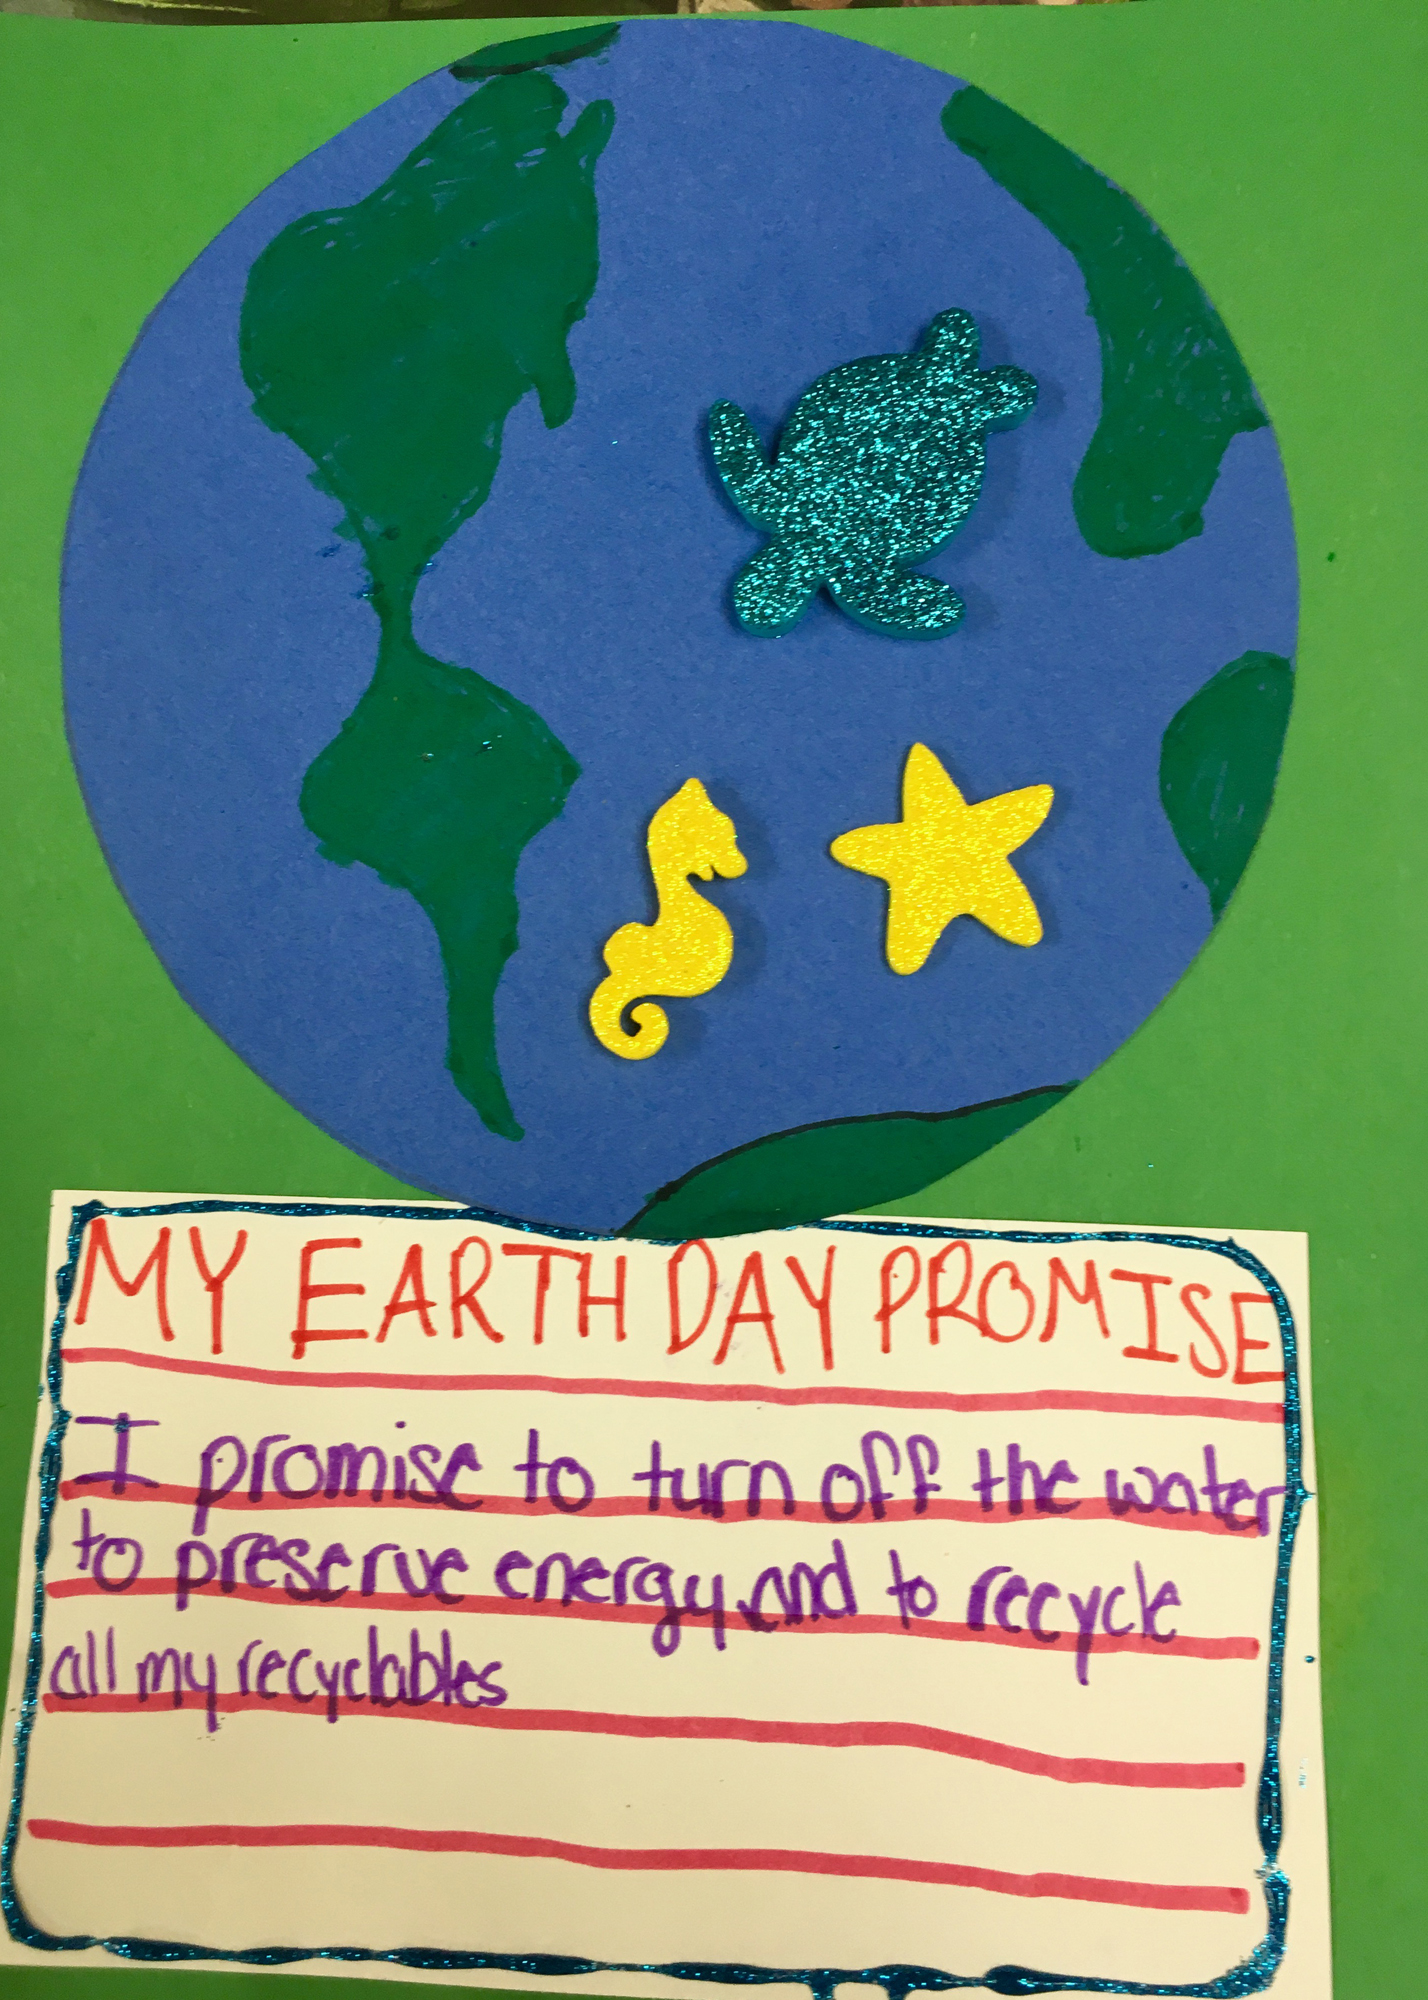 MY EARTH DAY PROMISE
I promise to turn off the water
to preserve energy, and to recycle
all my recyclables